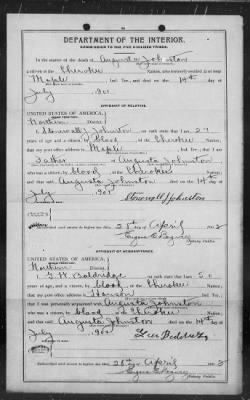 DEPARTMENT OF THE INTERIOR.
COMMISSION TO THE FIVE CIVILIZED TRIBES.
In the matter of the death of Augusta Johnston
a citizen of the Cherokee Nation, who formerly resided at or near
Maple, Ind. Ter., and died on the 14th day of
July, 1901.
AFFIDAVIT OF RELATIVE.
UNITED STATES OF AMERICA,
Northern District.
I, Stonewall Johnston on oath state that I am 27
years of age and a citizen, by blood, of the Cherokee Nation;
that my post office address is Maple, Ind. Ter.; that I am
Father of Augusta Johnston
who was a citizen, by blood, of the Cherokee Nation;
and that said Augusta Johnston died on the 14th day of
July, 1901
Stonewall Johnston
25th day of April 1902
Notary Public.
AFFIDAVIT OF ACQUAINTANCE.
UNITED STATES OF AMERICA,
Northern District.
on oath state that I am
years of age, and a citizen, by blood, of the Cherokee Nation;
that my post office address is Ind. Ter.;
that I was personally acquainted with Augusta Johnston
who was a citizen, by blood, of the Cherokee Nation;
and that said Augusta Johnston died on the 14th day of
July, 1901
day of April
Notary Public.